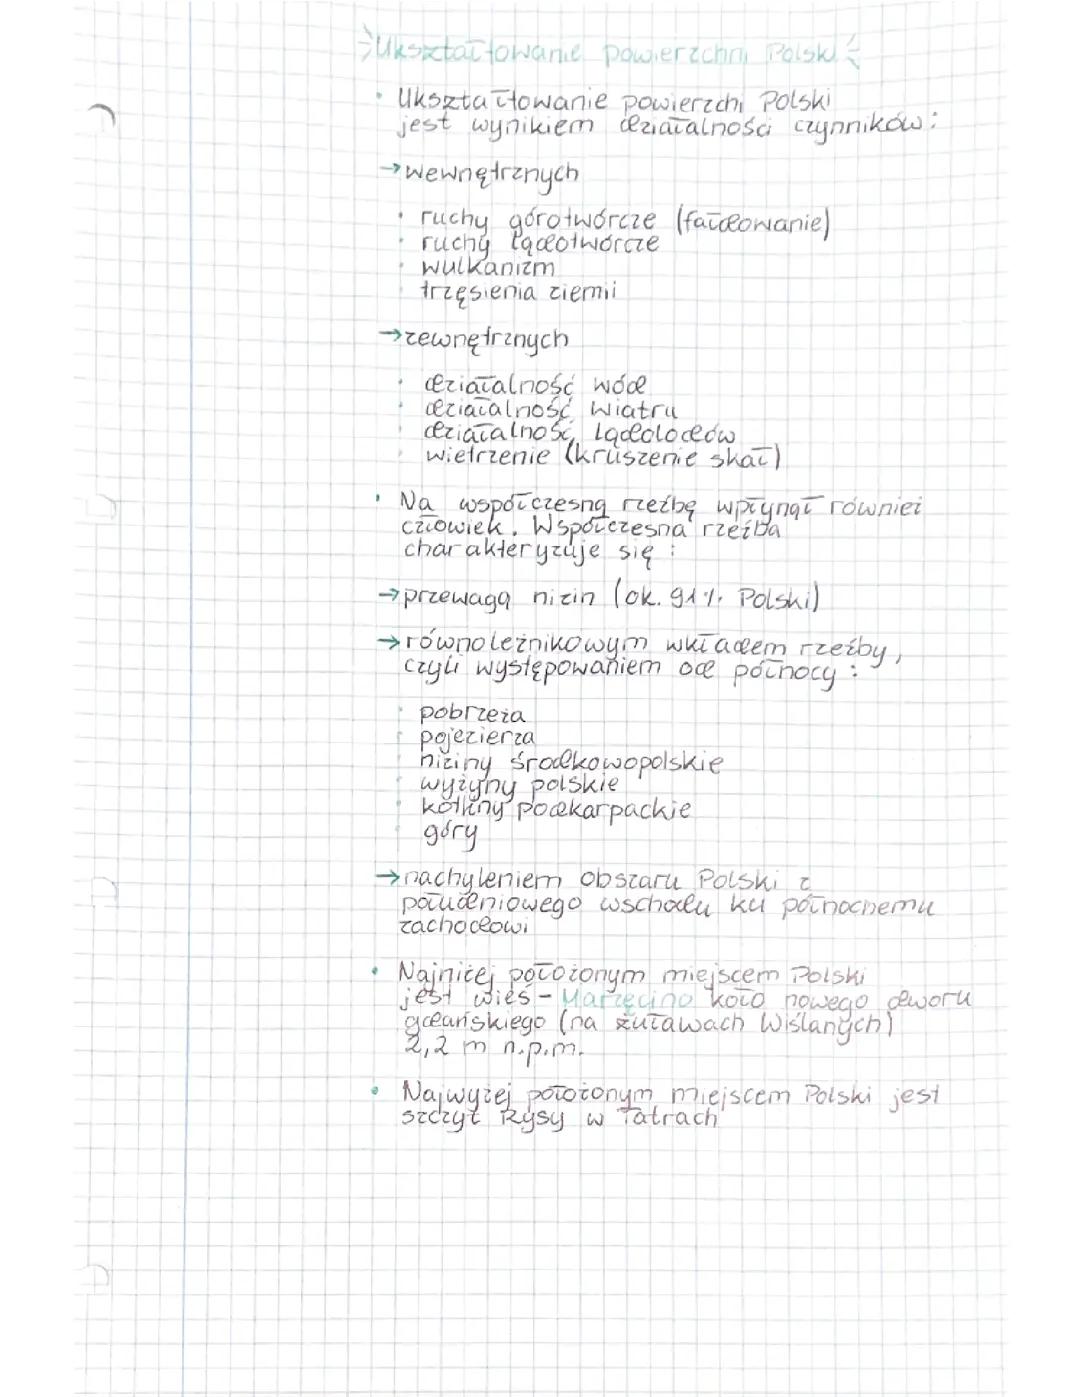 Ukształtowanie powierzchni Polski
• Ukształtowanie powierzchi Polski
jest wynikiem działalności czynników:
→ wewnętrznych
• ruchy górotwórcze (fałdowanie)
• ruchy lądotwórcze
• wulkanizm
• trzęsienia ziemii
→ zewnętrznych
• działalność wód
• działalność wiatru
• działalność lądolodów
• wietrzenie (kruszenie skał)
• Na współczesną rzeźbę wpłynął również
człowiek. Współczesna rzeźba
charakteryzuje się:
→ przewagą nizin (ok. 91% Polski)
→ równoleżnikowym wkładem rzeźby,
czyli występowaniem od północy:
• pobrzeża
• pojezierza
• niziny środkowopolskie
• wyżyny polskie
• kotliny podkarpackie
• góry
→ nachyleniem obszaru Polski z
południowego wschodu ku północnemu
zachodowi
• Najniżej położonym miejscem Polski
jest wieś - Marzęcino koło nowego dworu
gdańskiego (na żuławach Wiślanych)
2,2 m n.p.m.
• Najwyżej położonym miejscem Polski jest
szczyt Rysy w Tatrach